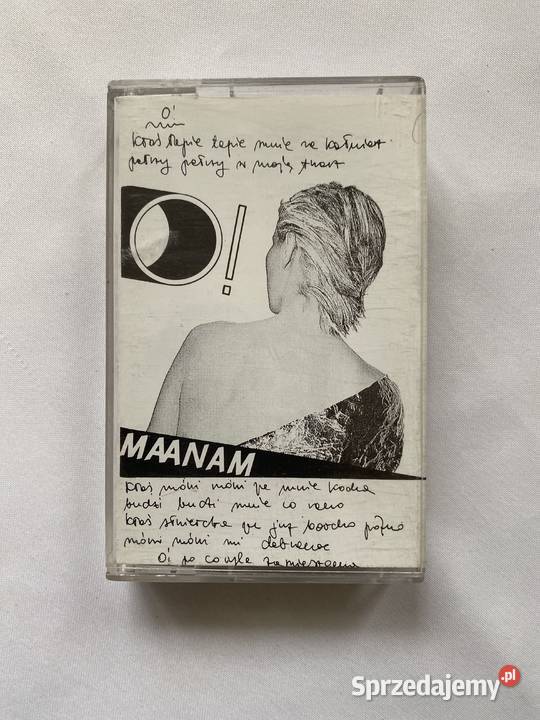 O!
ktoś łapie łapie mnie za kołnierz
patrzy patrzy w moją twarz
O!
MAANAM
ktoś mówi mówi że mnie kocha
budzi budzi mnie co rano
ktoś stwierdza że już bardzo późno
mówi mówi mi dobranoc
O! po co tyle zamieszania
Sprzedajemy.pl